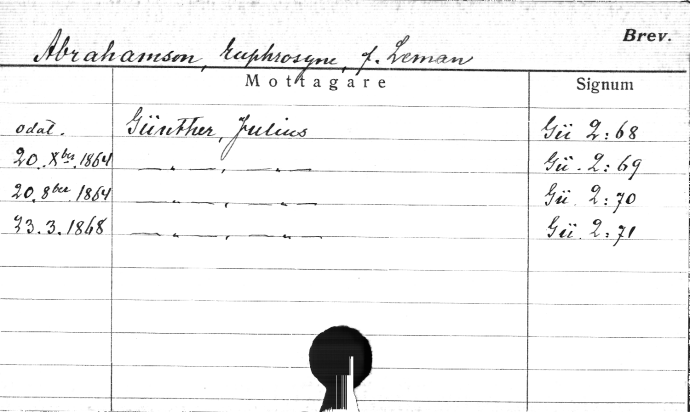 Brev.
Abrahamson, Euphrosyne, f. Leman
Mottagare Signum
odat. Günther, Julius Gü 2:68
20. Xber. 1864 — " — , — " — Gü. 2:69
20. 8ber 1864 — " — , — " — Gü. 2:70
23.3.1868 — " — , — " — Gü. 2:71